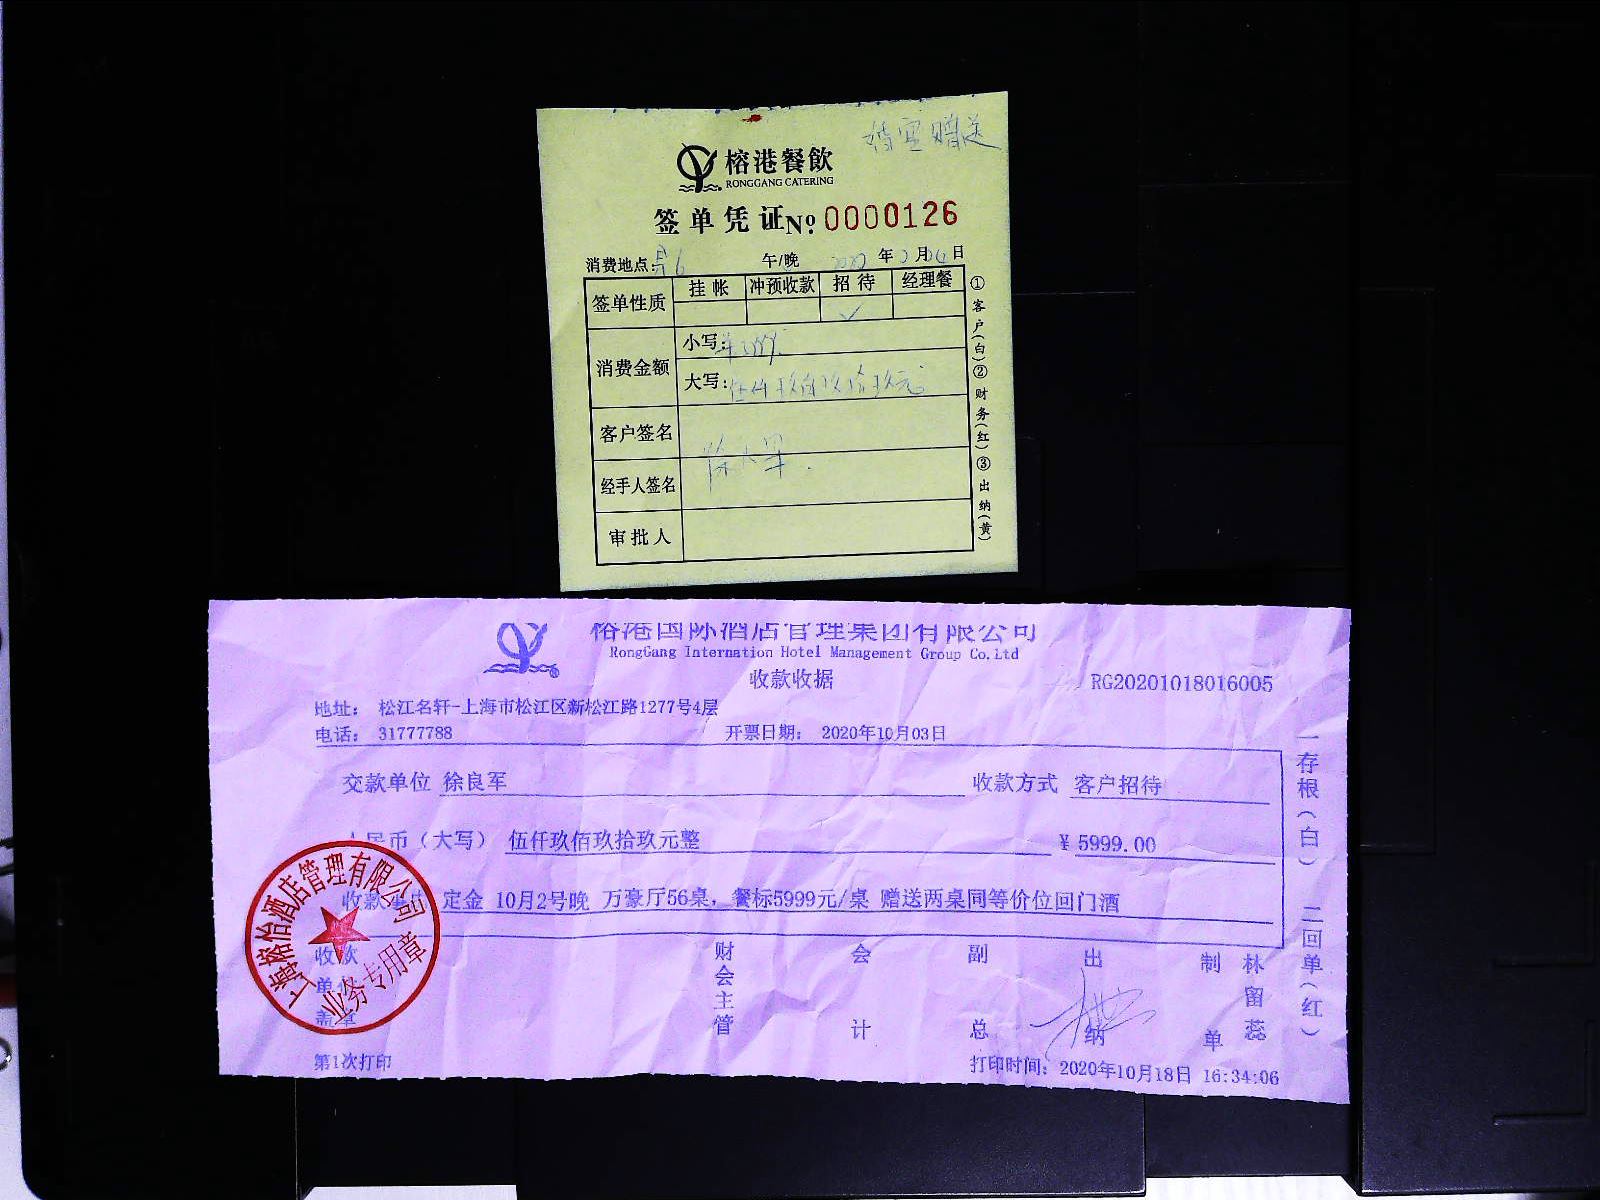 婚宴赠送
榕港餐飲
RONGGANG CATERING
签单凭证 №: 0000126
消费地点: 午/晚 年 月 日
签单性质 挂帐 冲预收款 招待 经理餐
✓
消费金额 小写:
大写: 伍仟玖佰玖拾玖元
客户签名
经手人签名
审批人
①客户(白)②财务(红)③出纳(黄)
榕港国际酒店管理集团有限公司
RongGang Internation Hotel Management Group Co.Ltd
收款收据
RG20201018016005
地址: 松江名轩-上海市松江区新松江路1277号4层
电话: 31777788 开票日期: 2020年10月03日
交款单位 徐良军 收款方式 客户招待
人民币(大写) 伍仟玖佰玖拾玖元整 ¥ 5999.00
收款事由 定金 10月2号晚 万豪厅56桌,餐标5999元/桌 赠送两桌同等价位回门酒
收款单位盖章 财会主管 会计 副总 出纳 制单 林留蕊
第1次打印 打印时间: 2020年10月18日 16:34:06
一存根(白) 二回单(红)
上海榕怡酒店管理有限公司
业务专用章